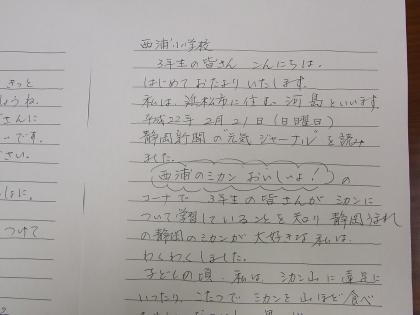 西浦小学校
3年生の皆さん こんにちは。
はじめて おたより いたします。
私は、浜松市に住む 河島といいます。
平成22年 2月21日(日曜日)
静岡新聞の"元気ジャーナル"を読み
ました。
西浦のミカン おいしいよ! の
コーナーで 3年生の皆さんが ミカンに
ついて学習していることを知り 静岡うまれ
の静岡のミカンが 大好きな 私は、
わくわくしました。
子どもの頃、私は、ミカン山に遠足に
いったり、こたつで ミカンを 山ほど食べ
きっと
ょうね。
さんに
です。
ださい。
しょに。
つけて